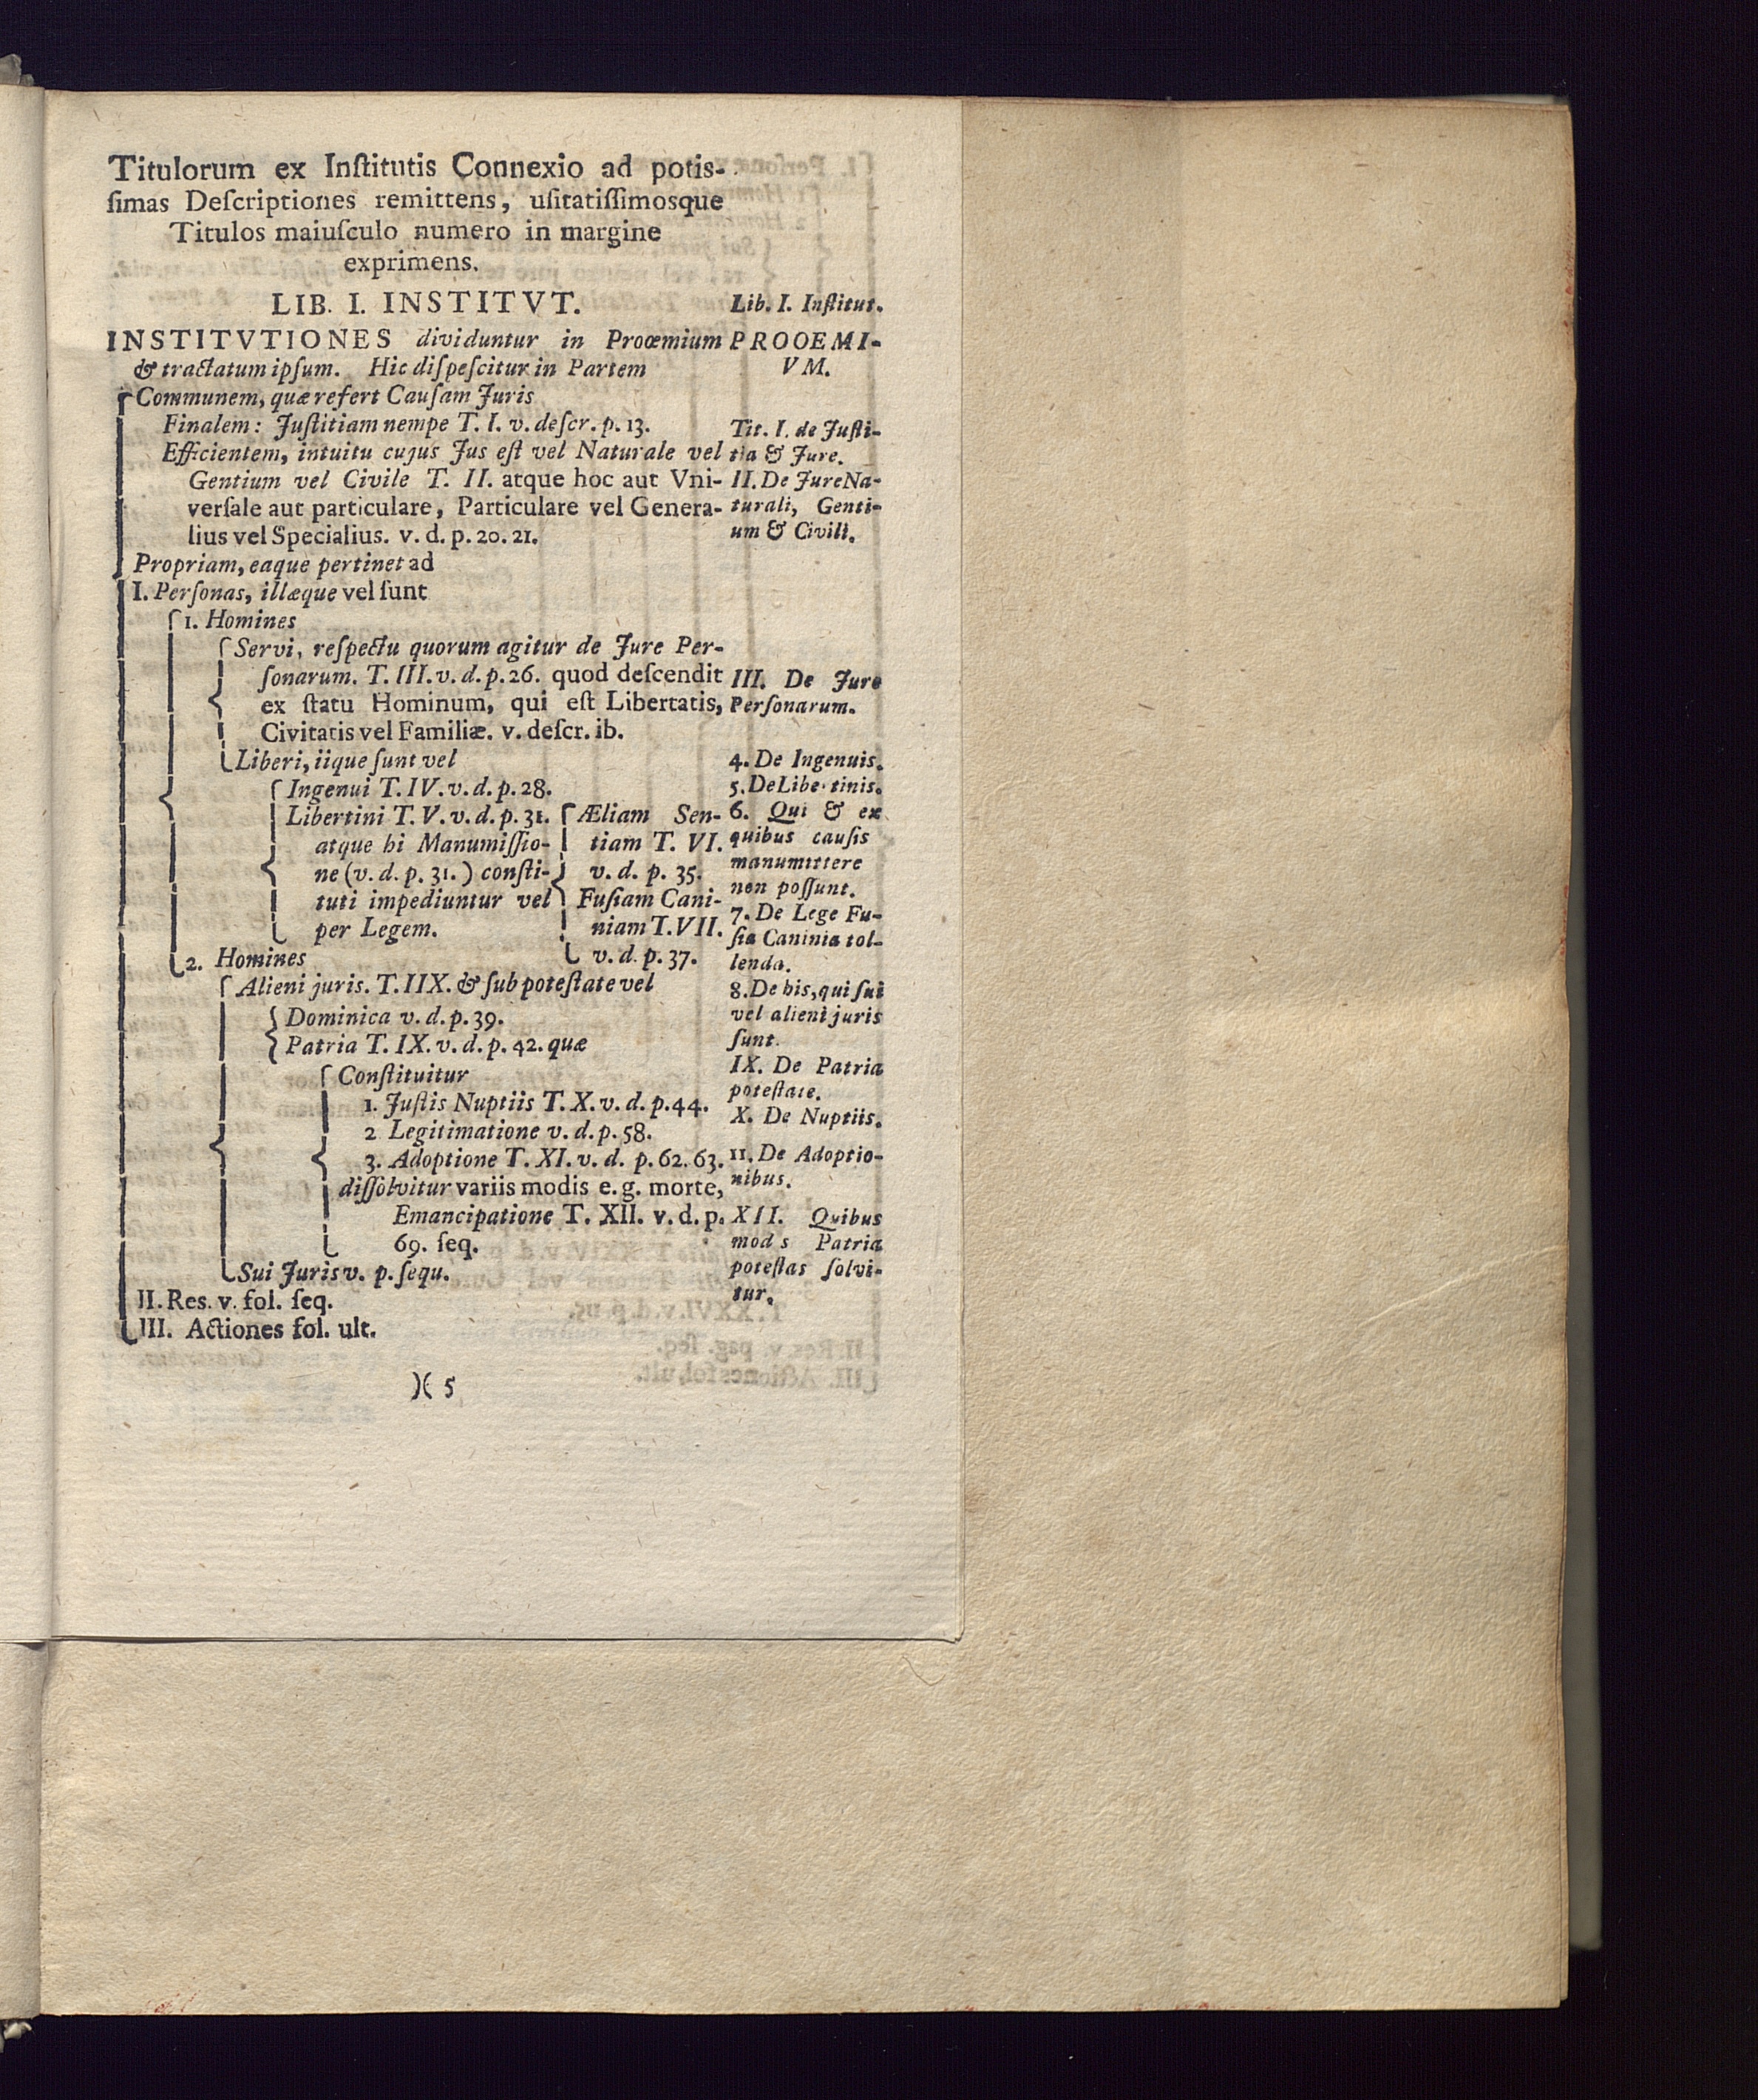 Titulorum ex Inſtitutis Connexio ad potiſ-
ſimas Deſcriptiones remittens, uſitatiſſimosque
Titulos maiuſculo numero in margine
exprimens.
LIB. I. INSTITVT.
INSTITVTIONES dividuntur in Proœmium
& tractatum ipſum. Hic diſpeſcitur in Partem
Communem, quæ refert Cauſam Juris
Finalem: Juſtitiam nempe T. I. v. deſcr. p. 13.
Efficientem, intuitu cujus Jus eſt vel Naturale vel
Gentium vel Civile T. II. atque hoc aut Vni-
verſale aut particulare, Particulare vel Genera-
lius vel Specialius. v. d. p. 20. 21.
Propriam, eaque pertinet ad
I. Perſonas, illæque vel ſunt
1. Homines
Servi, reſpectu quorum agitur de Jure Per-
ſonarum. T. III. v. d. p. 26. quod deſcendit
ex ſtatu Hominum, qui eſt Libertatis,
Civitatis vel Familiæ. v. deſcr. ib.
Liberi, iique ſunt vel
Ingenui T. IV. v. d. p. 28.
Libertini T. V. v. d. p. 31.
atque hi Manumiſſio-
ne (v. d. p. 31.) conſti-
tuti impediuntur vel
per Legem.
Æliam Sen-
tiam T. VI.
v. d. p. 35.
Fuſiam Cani-
niam T. VII.
v. d. p. 37.
2. Homines
Alieni juris. T. IIX. & ſub poteſtate vel
Dominica v. d. p. 39.
Patria T. IX. v. d. p. 42. quæ
Conſtituitur
1. Juſtis Nuptiis T. X. v. d. p. 44.
2 Legitimatione v. d. p. 58.
3. Adoptione T. XI. v. d. p. 62. 63.
diſſolvitur variis modis e. g. morte,
Emancipatione T. XII. v. d. p.
69. ſeq.
Sui Juris v. p. ſequ.
II. Res. v. fol. ſeq.
III. Actiones fol. ult.
)( 5
Lib. I. Inſtitut.
PROOEMI-
VM.
Tit. I. de Juſti-
tia & Jure.
II. De Jure Na-
turali, Genti-
um & Civili.
III. De Jure
Perſonarum.
4. De Ingenuis.
5. De Libertinis.
6. Qui & ex
quibus cauſis
manumittere
non poſſunt.
7. De Lege Fu-
ſia Caninia tol-
lenda.
8. De his, qui ſui
vel alieni juris
ſunt.
IX. De Patria
poteſtate.
X. De Nuptiis.
11. De Adoptio-
nibus.
XII. Quibus
mod s Patria
poteſtas ſolvi-
tur.